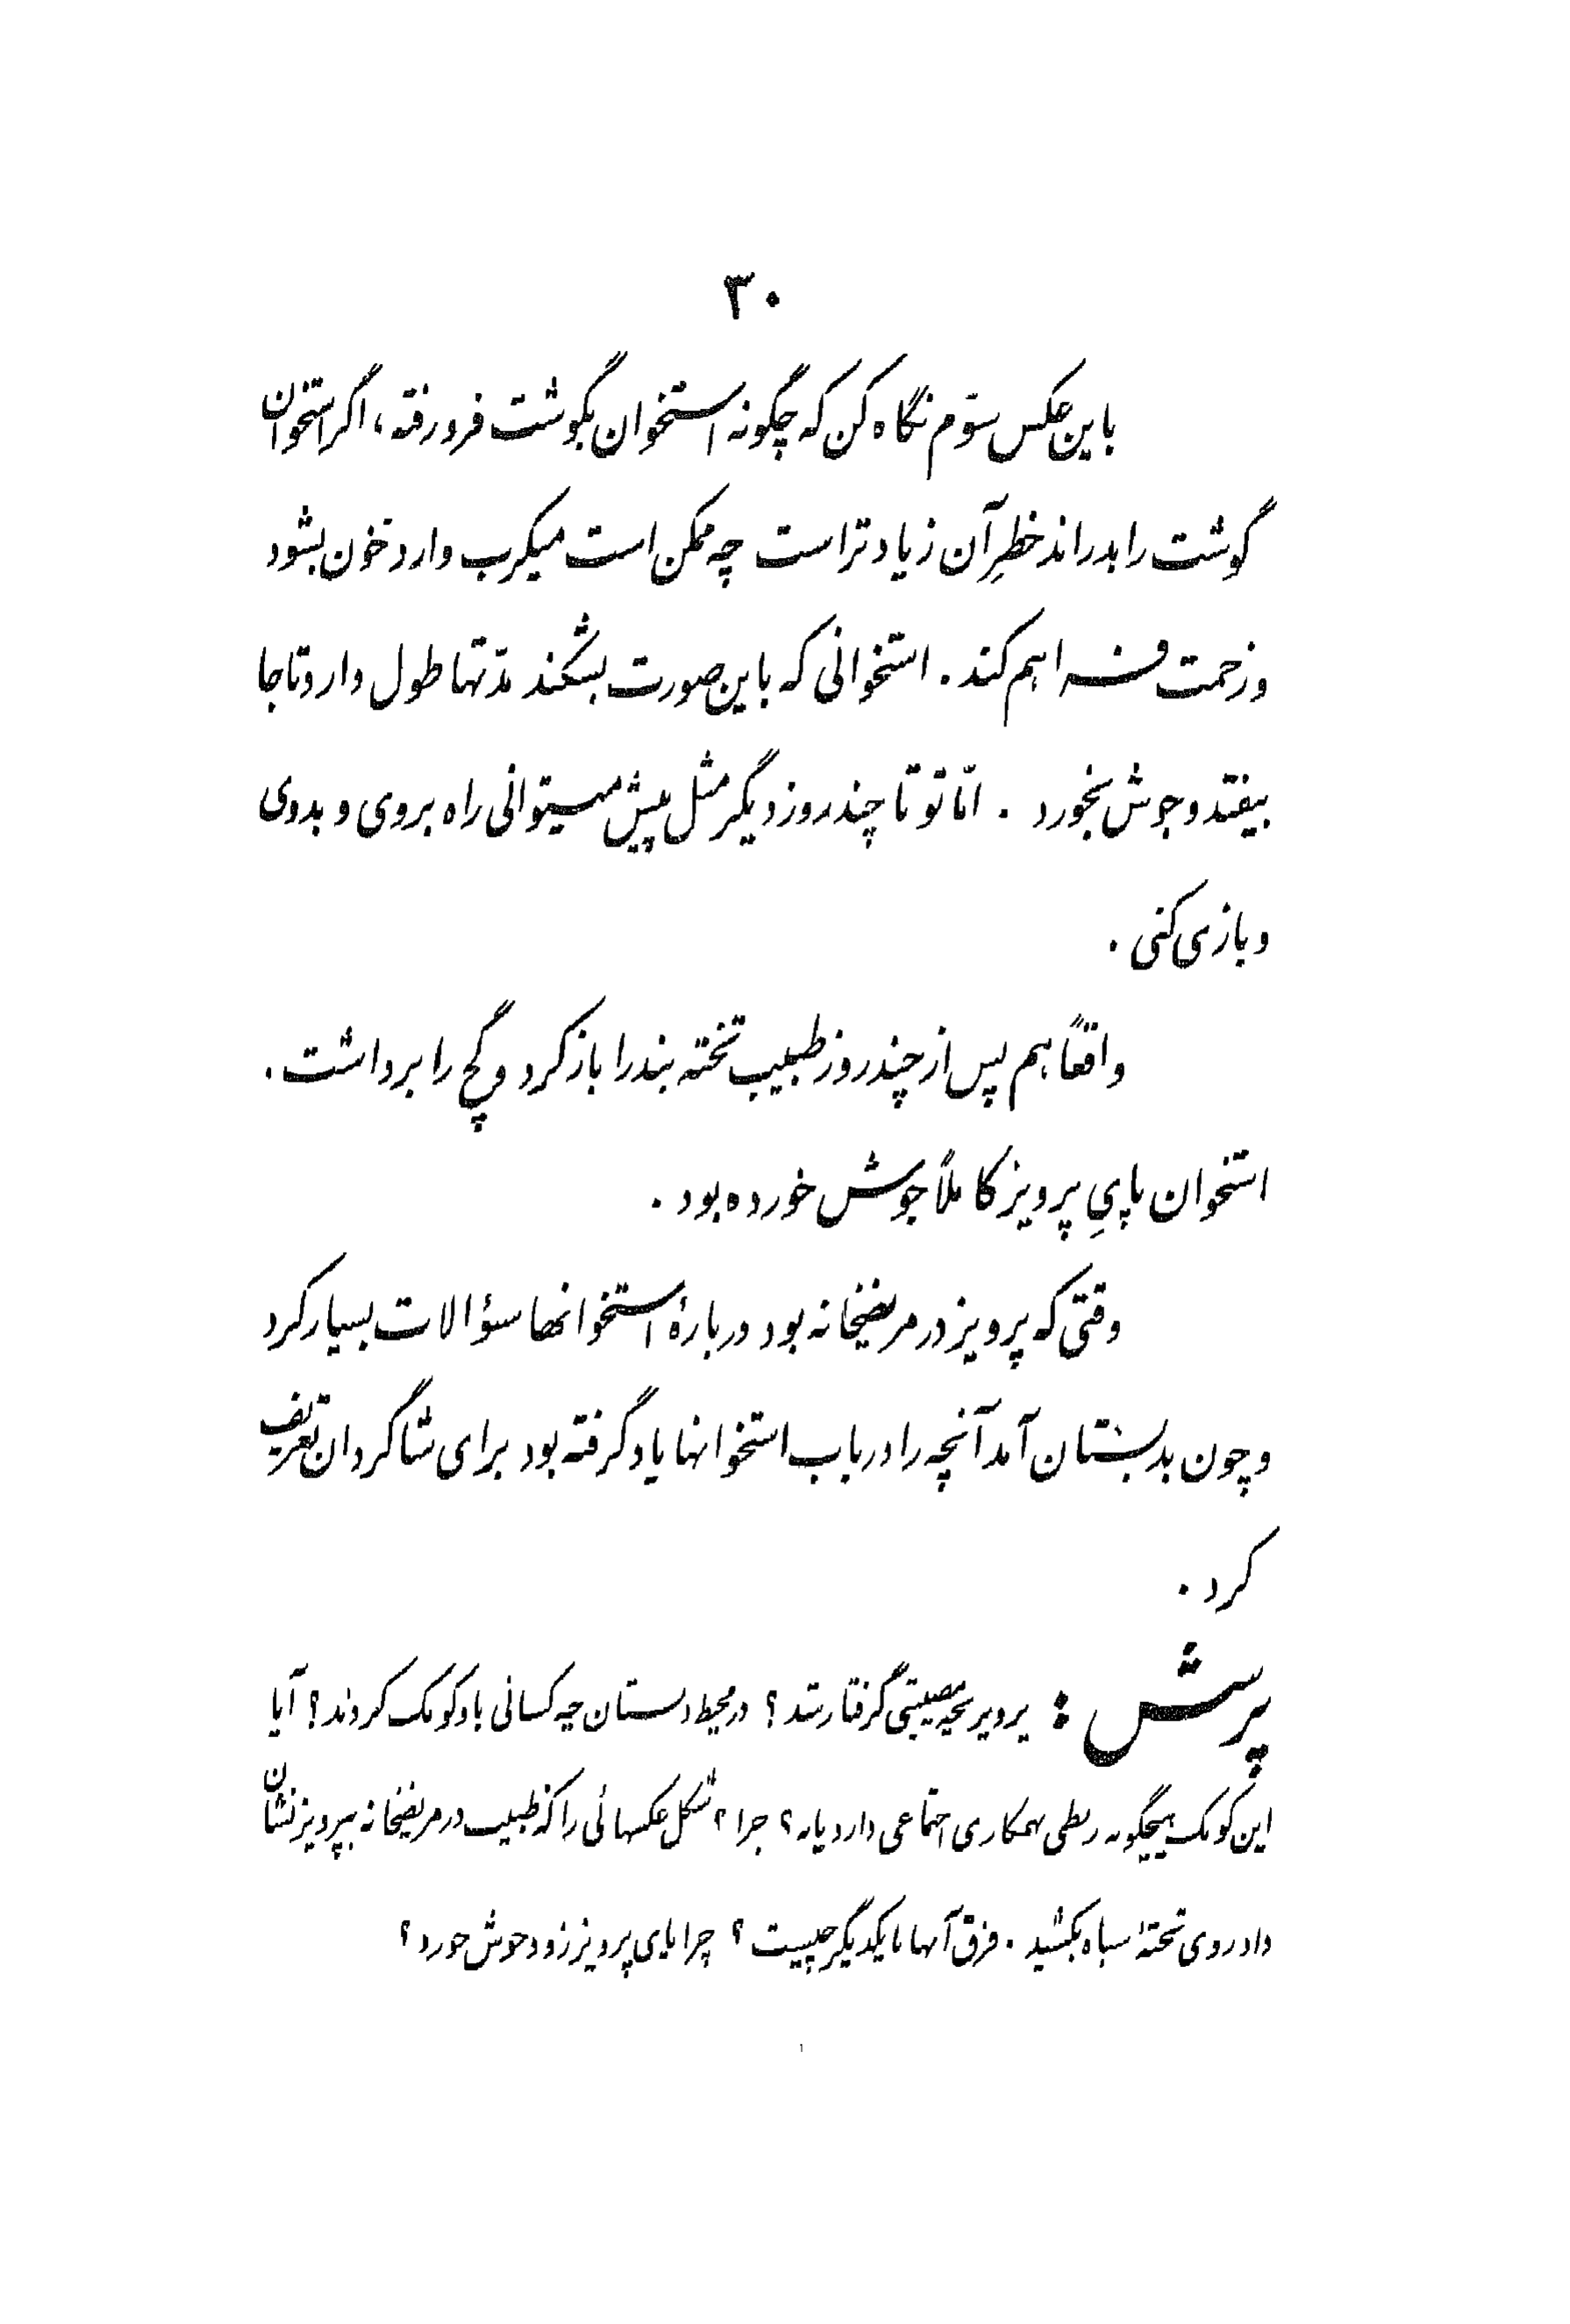 ۳۰
باین عکس سوّم نگاه کن که چگونه استخوان بگوشت فرو رفته ، اگر استخوان
گوشت را بدراند خطرِ آن زیادتر است چه ممکن است میکرب وارد خون بشود
و زحمت فراهم کند . استخوانی که باین صورت بشکند مدّتها طول دارد تا جا
بیفتد و جوش بخورد . امّا تو تا چند روز دیگر مثل پیش میتوانی راه بروی و بدوی
و بازی کنی .
واقعاً هم پس از چند روز طبیب تخته بند را باز کرد و گچ را برداشت .
استخوان پایِ پرویز کاملاً جوش خورده بود .
وقتی که پرویز در مریضخانه بود دربارهٔ استخوانها سؤالات بسیار کرد
و چون بدبستان آمد آنچه را در باب استخوانها یاد گرفته بود برای شاگردان تعریف
کرد .
پرسش : پرویز بچه مصیبتی گرفتار شد ؟ در محیط دبستان چه کسانی باو کومک کردند ؟ آیا
این کومک هیچگونه ربطی بهمکاری اجتماعی دارد یا نه ؟ چرا ؟ شکل عکسهائی را که طبیب در مریضخانه بپرویز نشان
داد روی تختهٔ سیاه بکشید . فرق آنها با یکدیگر چیست ؟ چرا پای پرویز زود جوش خورد ؟